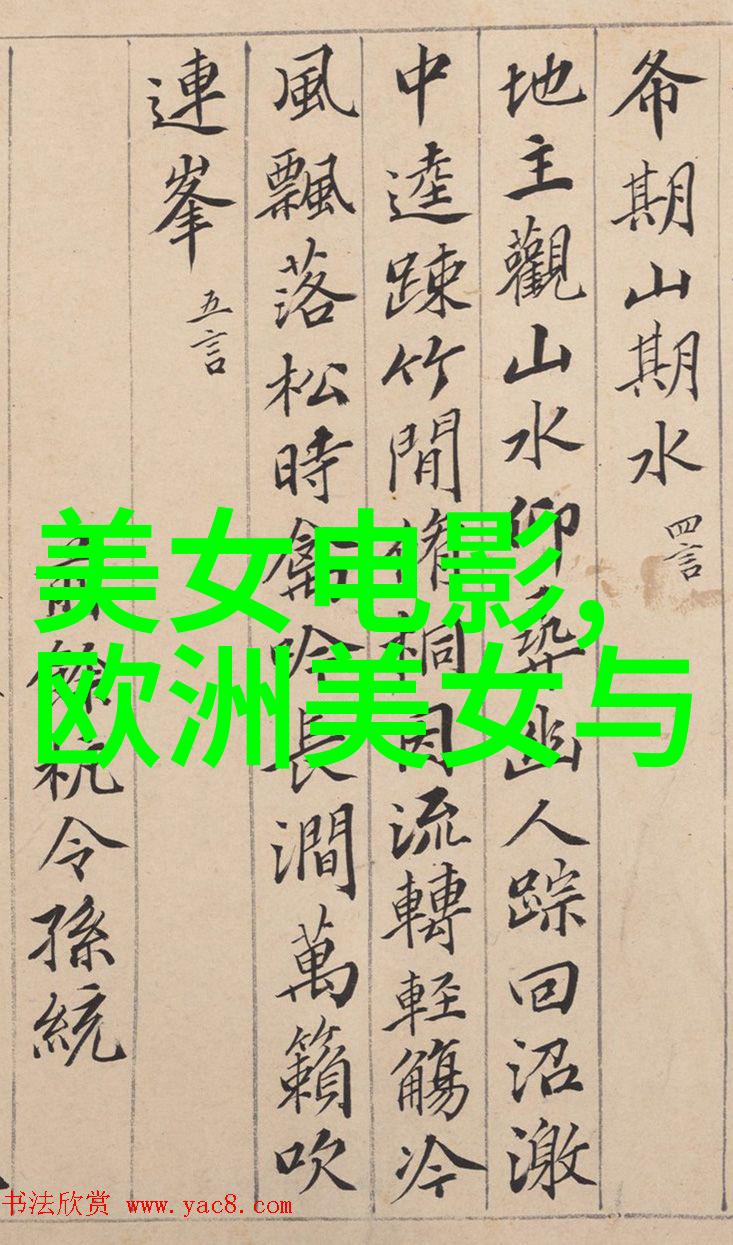 希期山期水 四言
地主觀山水仰尋幽人踪回沼激
中逵踈竹間修桐因流轉輕觴冷
風飄落松時禽吟長澗萬籟吹
連峯 五言
前餘杭令孫統
美女电影,
欧洲美女与
书法欣赏 www.yac8.com